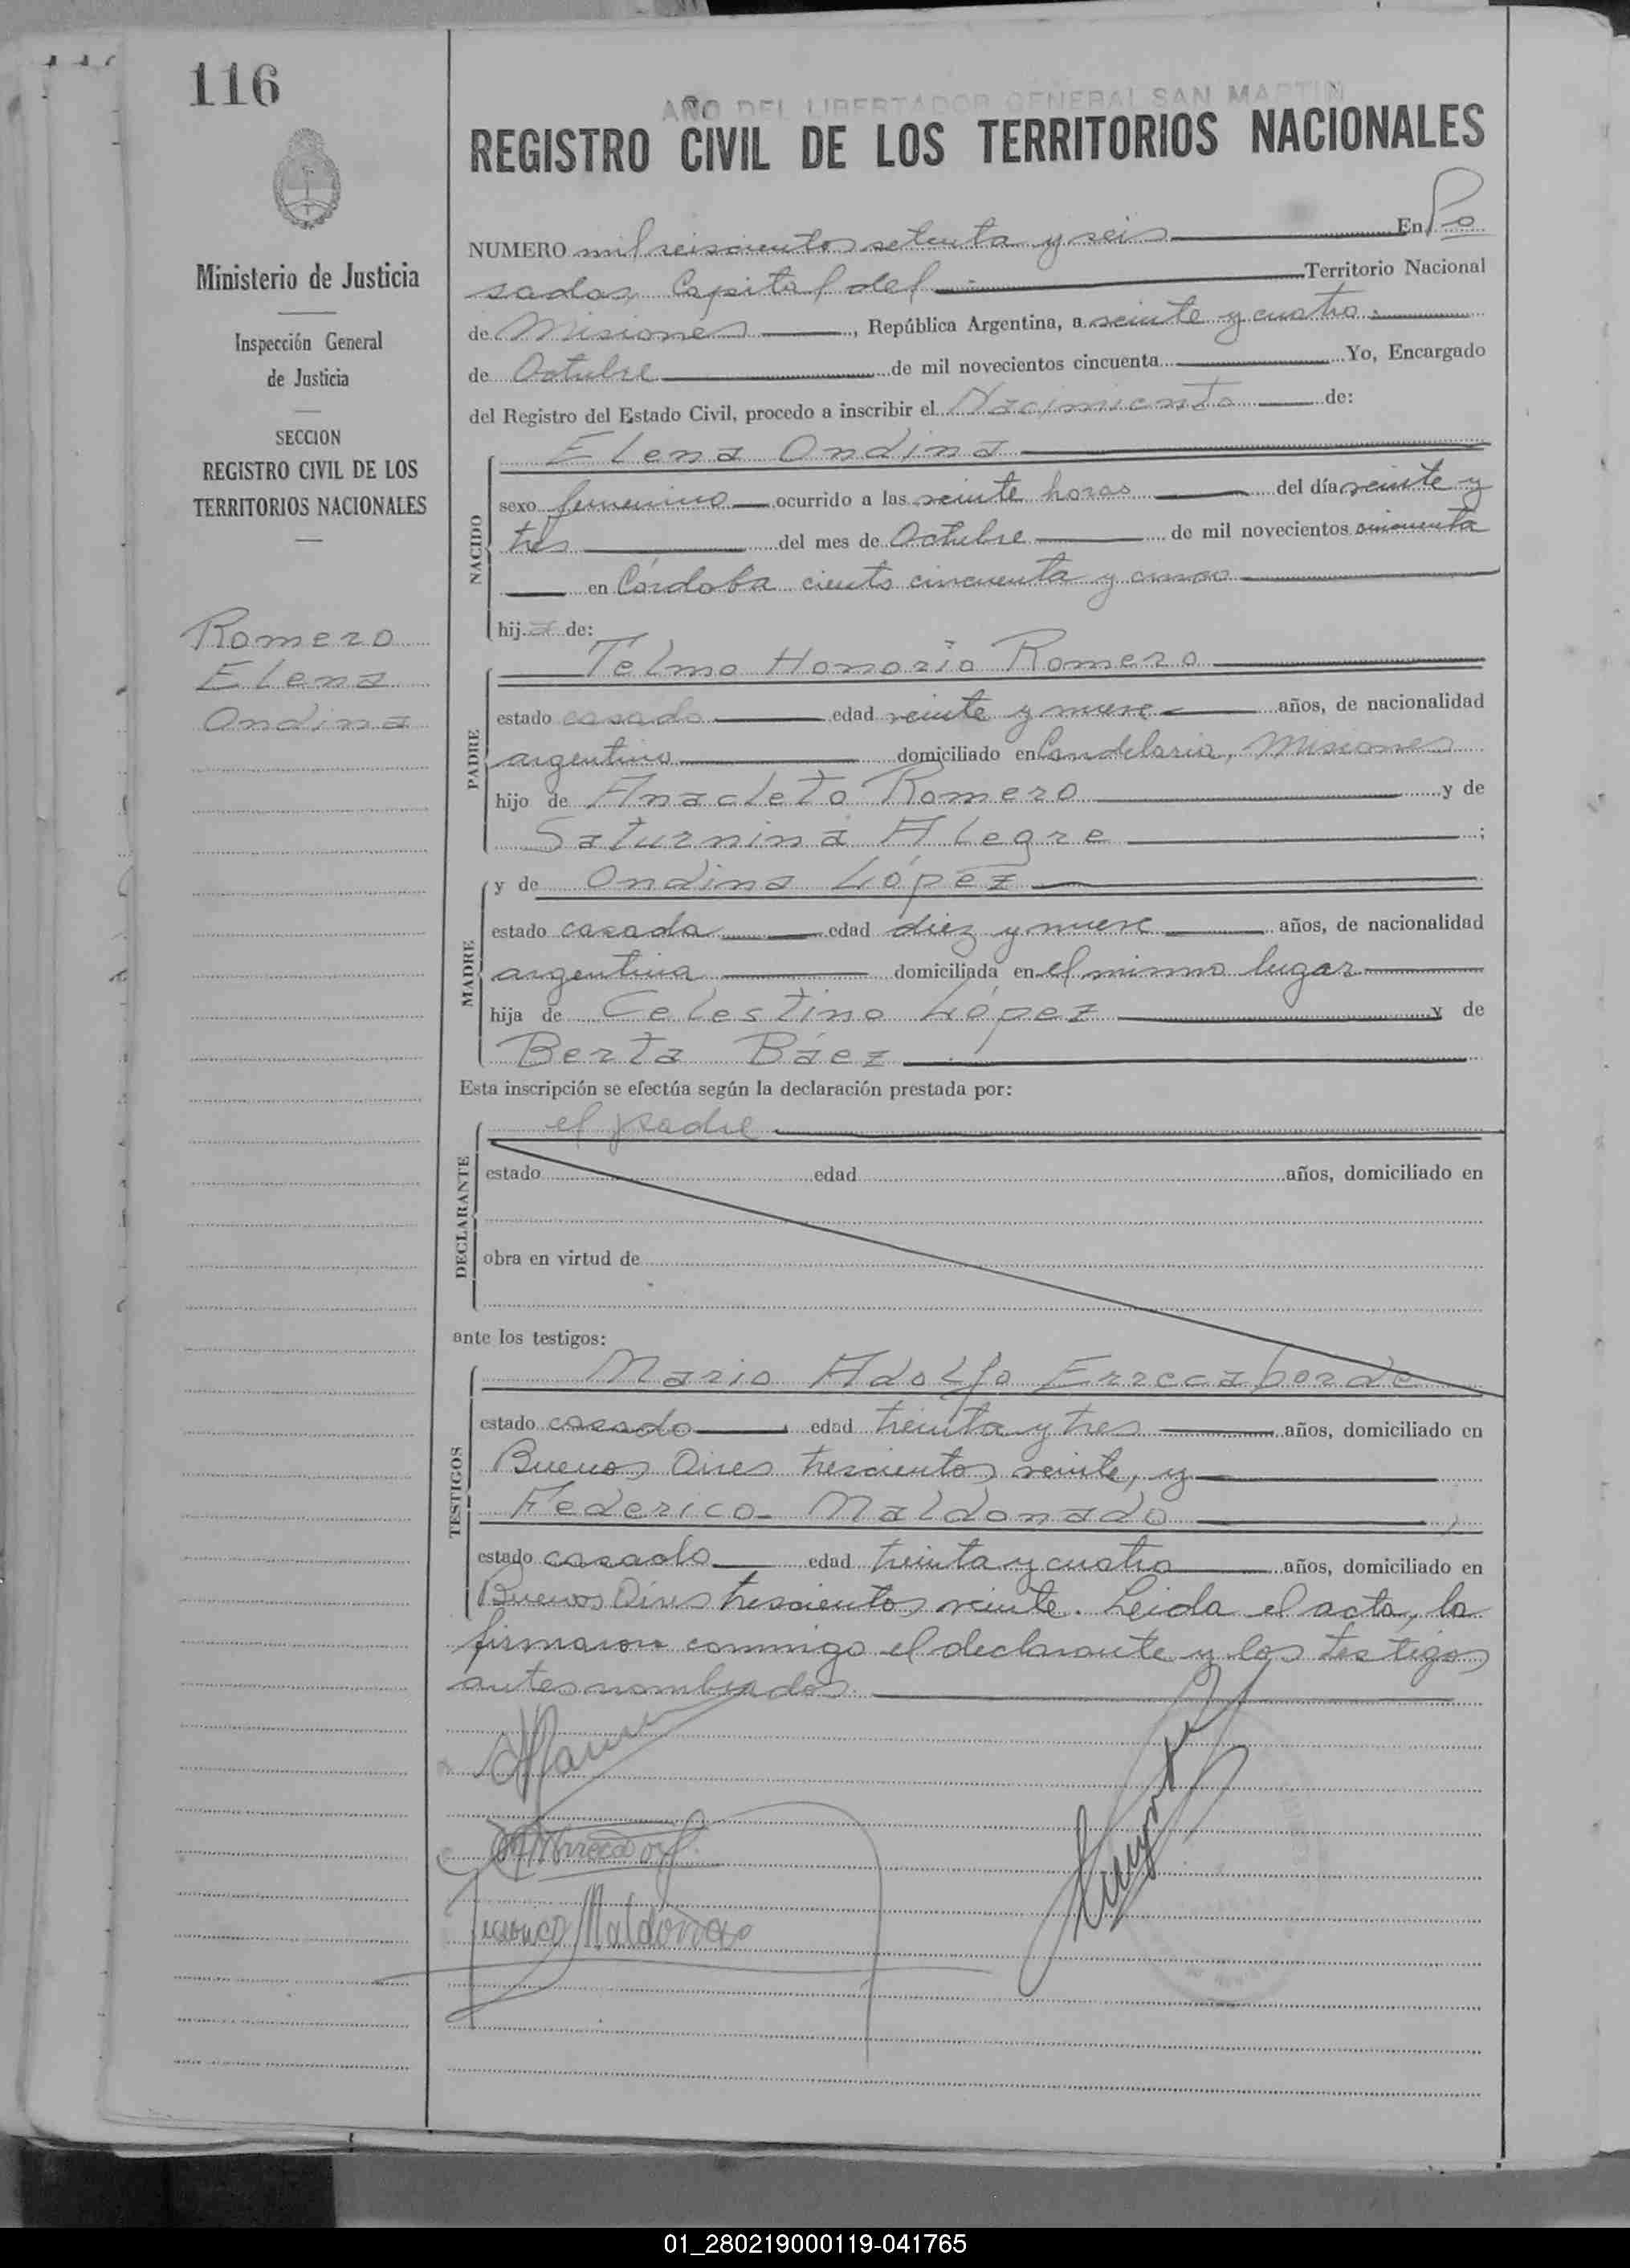 116
AÑO DEL LIBERTADOR GENERAL SAN MARTIN
REGISTRO CIVIL DE LOS TERRITORIOS NACIONALES
Ministerio de Justicia
Inspección General
de Justicia
SECCION
REGISTRO CIVIL DE LOS
TERRITORIOS NACIONALES
Romero
Elena
Ondina
NUMERO mil seiscientos setenta y seis En Po
sadas Capital del Territorio Nacional
de Misiones, República Argentina, a veinte y cuatro
de Octubre de mil novecientos cincuenta Yo, Encargado
del Registro del Estado Civil, procedo a inscribir el Nacimiento de:
NACIDO
Elena Ondina
sexo femenino ocurrido a las veinte horas del día veinte y
tres del mes de Octubre de mil novecientos cincuenta
en Córdoba ciento cincuenta y cinco
hija de:
PADRE
Telmo Honorio Romero
estado casado edad veinte y nueve años, de nacionalidad
argentino domiciliado en Candelaria, Misiones
hijo de Anacleto Romero y de
Saturnina Alegre ;
MADRE
y de Ondina López
estado casada edad diez y nueve años, de nacionalidad
argentina domiciliada en el mismo lugar
hija de Celestino López y de
Berta Báez
Esta inscripción se efectúa según la declaración prestada por:
DECLARANTE
el padre
estado edad años, domiciliado en
obra en virtud de
ante los testigos:
TESTIGOS
Mario Adolfo Errecaborde
estado casado edad treinta y tres años, domiciliado en
Buenos Aires trescientos veinte, y
Federico Maldonado
estado casado edad treinta y cuatro años, domiciliado en
Buenos Aires trescientos veinte. Leida el acta, la
firmaron conmigo el declarante y los testigos
antes nombrados.
Federico Maldonado
01_280219000119-041765